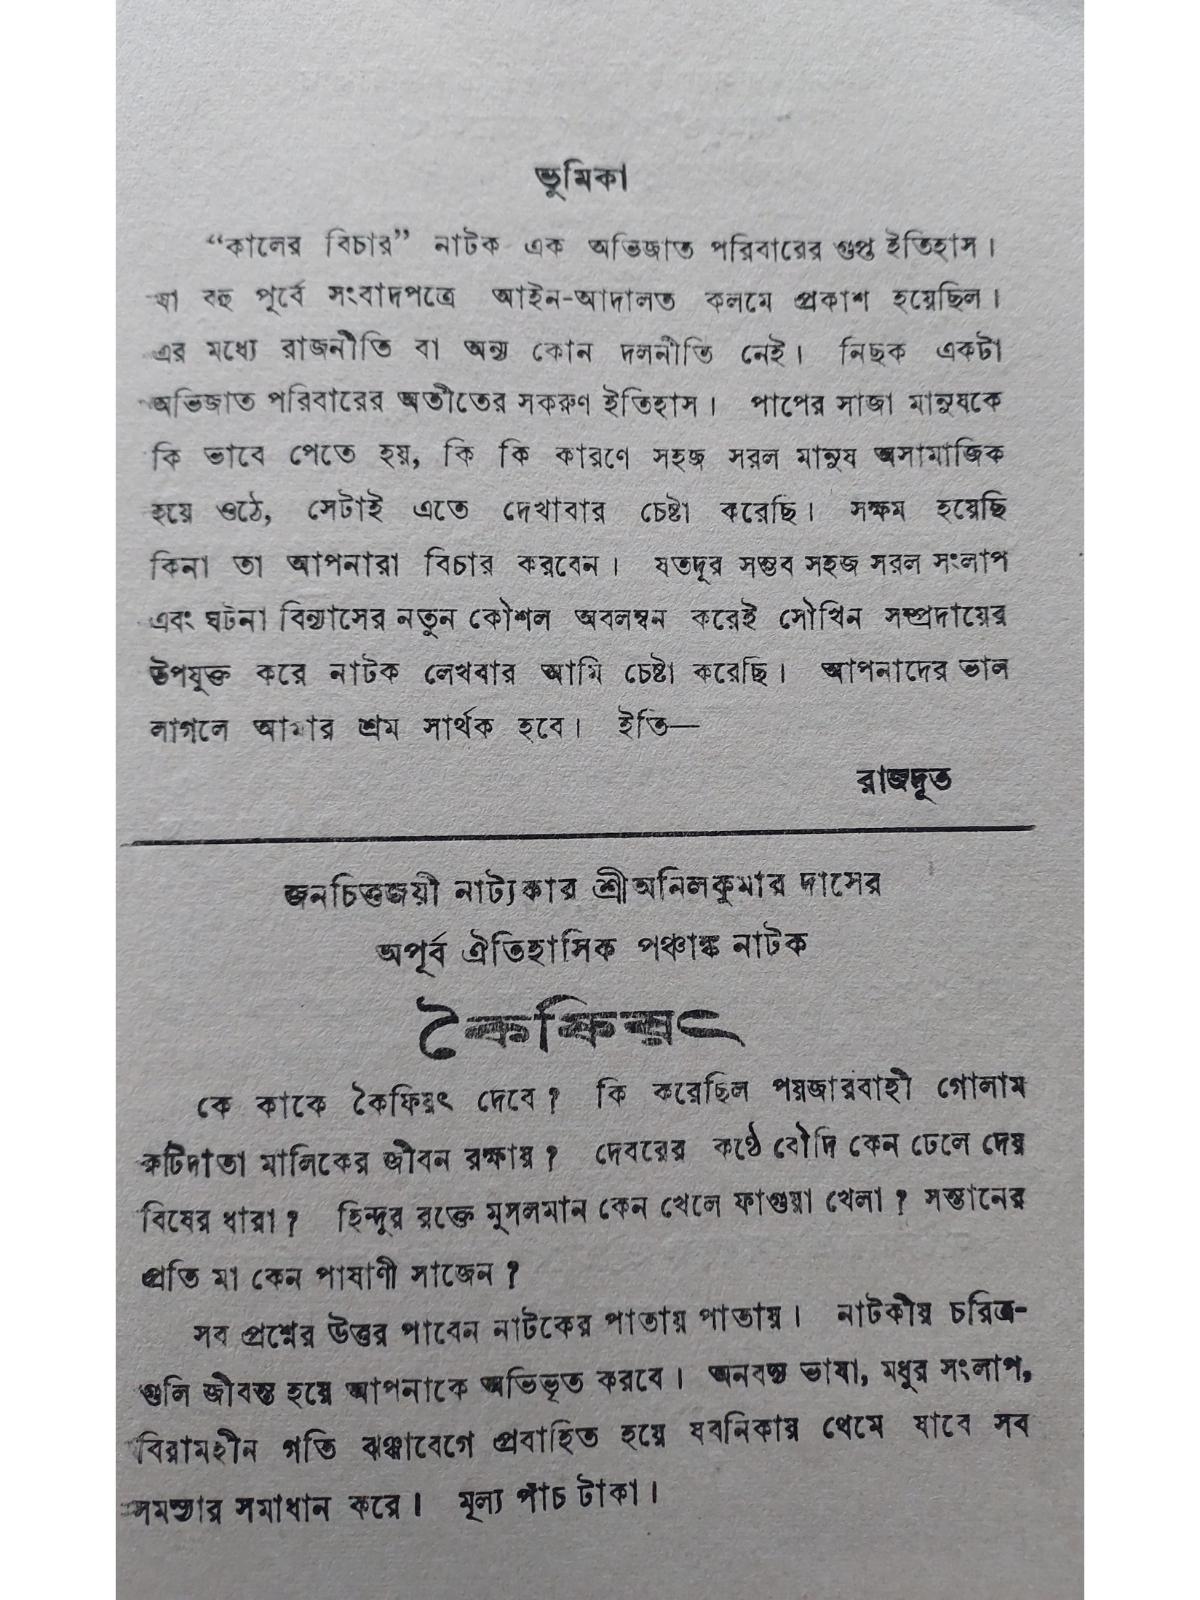 ভূমিকা
“কালের বিচার” নাটক এক অভিজাত পরিবারের গুপ্ত ইতিহাস।
যা বহু পূর্বে সংবাদপত্রে আইন-আদালত কলমে প্রকাশ হয়েছিল।
এর মধ্যে রাজনীতি বা অন্য কোন দলনীতি নেই। নিছক একটা
অভিজাত পরিবারের অতীতের সকরুণ ইতিহাস। পাপের সাজা মানুষকে
কি ভাবে পেতে হয়, কি কি কারণে সহজ সরল মানুষ অসামাজিক
হয়ে ওঠে, সেটাই এতে দেখাবার চেষ্টা করেছি। সক্ষম হয়েছি
কিনা তা আপনারা বিচার করবেন। যতদূর সম্ভব সহজ সরল সংলাপ
এবং ঘটনা বিন্যাসের নতুন কৌশল অবলম্বন করেই সৌখিন সম্প্রদায়ের
উপযুক্ত করে নাটক লেখবার আমি চেষ্টা করেছি। আপনাদের ভাল
লাগলে আমার শ্রম সার্থক হবে। ইতি—
রাজদূত
জনচিত্তজয়ী নাট্যকার শ্রীঅনিলকুমার দাসের
অপূর্ব ঐতিহাসিক পঞ্চাঙ্ক নাটক
কৈফিয়ৎ
কে কাকে কৈফিয়ৎ দেবে? কি করেছিল পয়জারবাহী গোলাম
রুটিদাতা মালিকের জীবন রক্ষায়? দেবরের কণ্ঠে বৌদি কেন ঢেলে দেয়
বিষের ধারা? হিন্দুর রক্তে মুসলমান কেন খেলে ফাগুয়া খেলা? সন্তানের
প্রতি মা কেন পাষাণী সাজেন?
সব প্রশ্নের উত্তর পাবেন নাটকের পাতায় পাতায়। নাটকীয় চরিত্র-
গুলি জীবন্ত হয়ে আপনাকে অভিভূত করবে। অনবদ্য ভাষা, মধুর সংলাপ,
বিরামহীন গতি ঝঞ্ঝাবেগে প্রবাহিত হয়ে যবনিকায় থেমে যাবে সব
সমস্যার সমাধান করে। মূল্য পাঁচ টাকা।